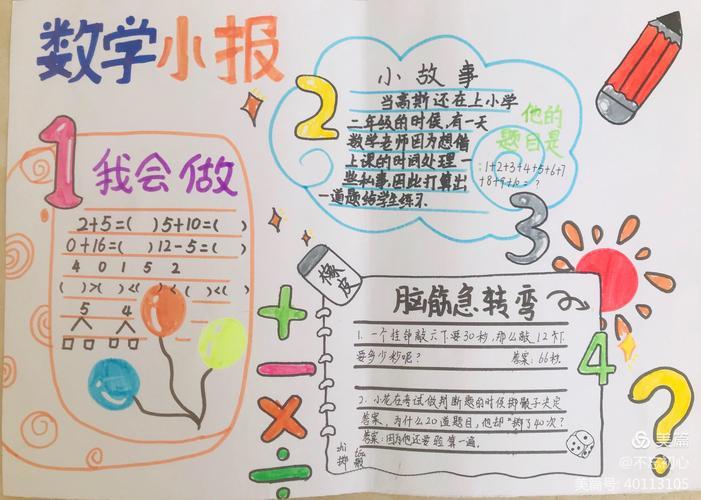 数学小报
1
我会做
2+5=( ) 5+10=( )
0+16=( ) 12-5=( )
4 0 1 5 2
( )>( )<( )<( )<( )
5 4
2
小故事
当高斯还在上小学
二年级的时候,有一天
数学老师因为想借
上课的时间处理一
些私事,因此打算出
一道题给学生练习.
他的
题目是
:1+2+3+4+5+6+7
+8+9+10=?
3
橡皮
脑筋急转弯
1. 一个挂钟敲六下要30秒,那么敲12下
要多少秒呢? 答案:66秒.
2. 小龙在考试做判断题的时候掷骰子决定
答案,为什么20道题目,他却掷了40次?
答案:因为他还要验算一遍.
4
?
+
-
×
÷
美篇
@不忘初心
美篇号: 40113105